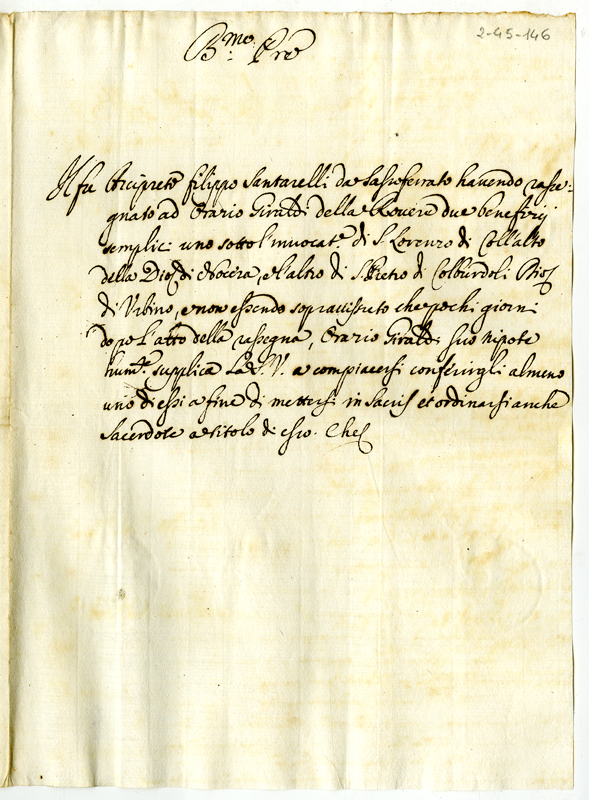 2-45-146
B.mo Pre
Il fu Arciprete Filippo Santarelli da Sassoferrato havendo rasse-
gnato ad Orazio Giraldi della Rovere due beneficij
semplici uno sotto l'invocat.e di S. Lorenzo di Collalto
della Dioc. di Nocera, e l'altro di S. Pietro di Colburdoli Dioc.
di Urbino, e non essendo sopravissuto che pochi giorni
dopo L'atto della rassegna, Orazio Giraldi suo Nipote
hum.e supplica La S. V. a compiacersi conferirgli almeno
uno di essi a fine di mettersi in Sacris et ordinarsi anche
Sacerdote a titolo di esso. Che